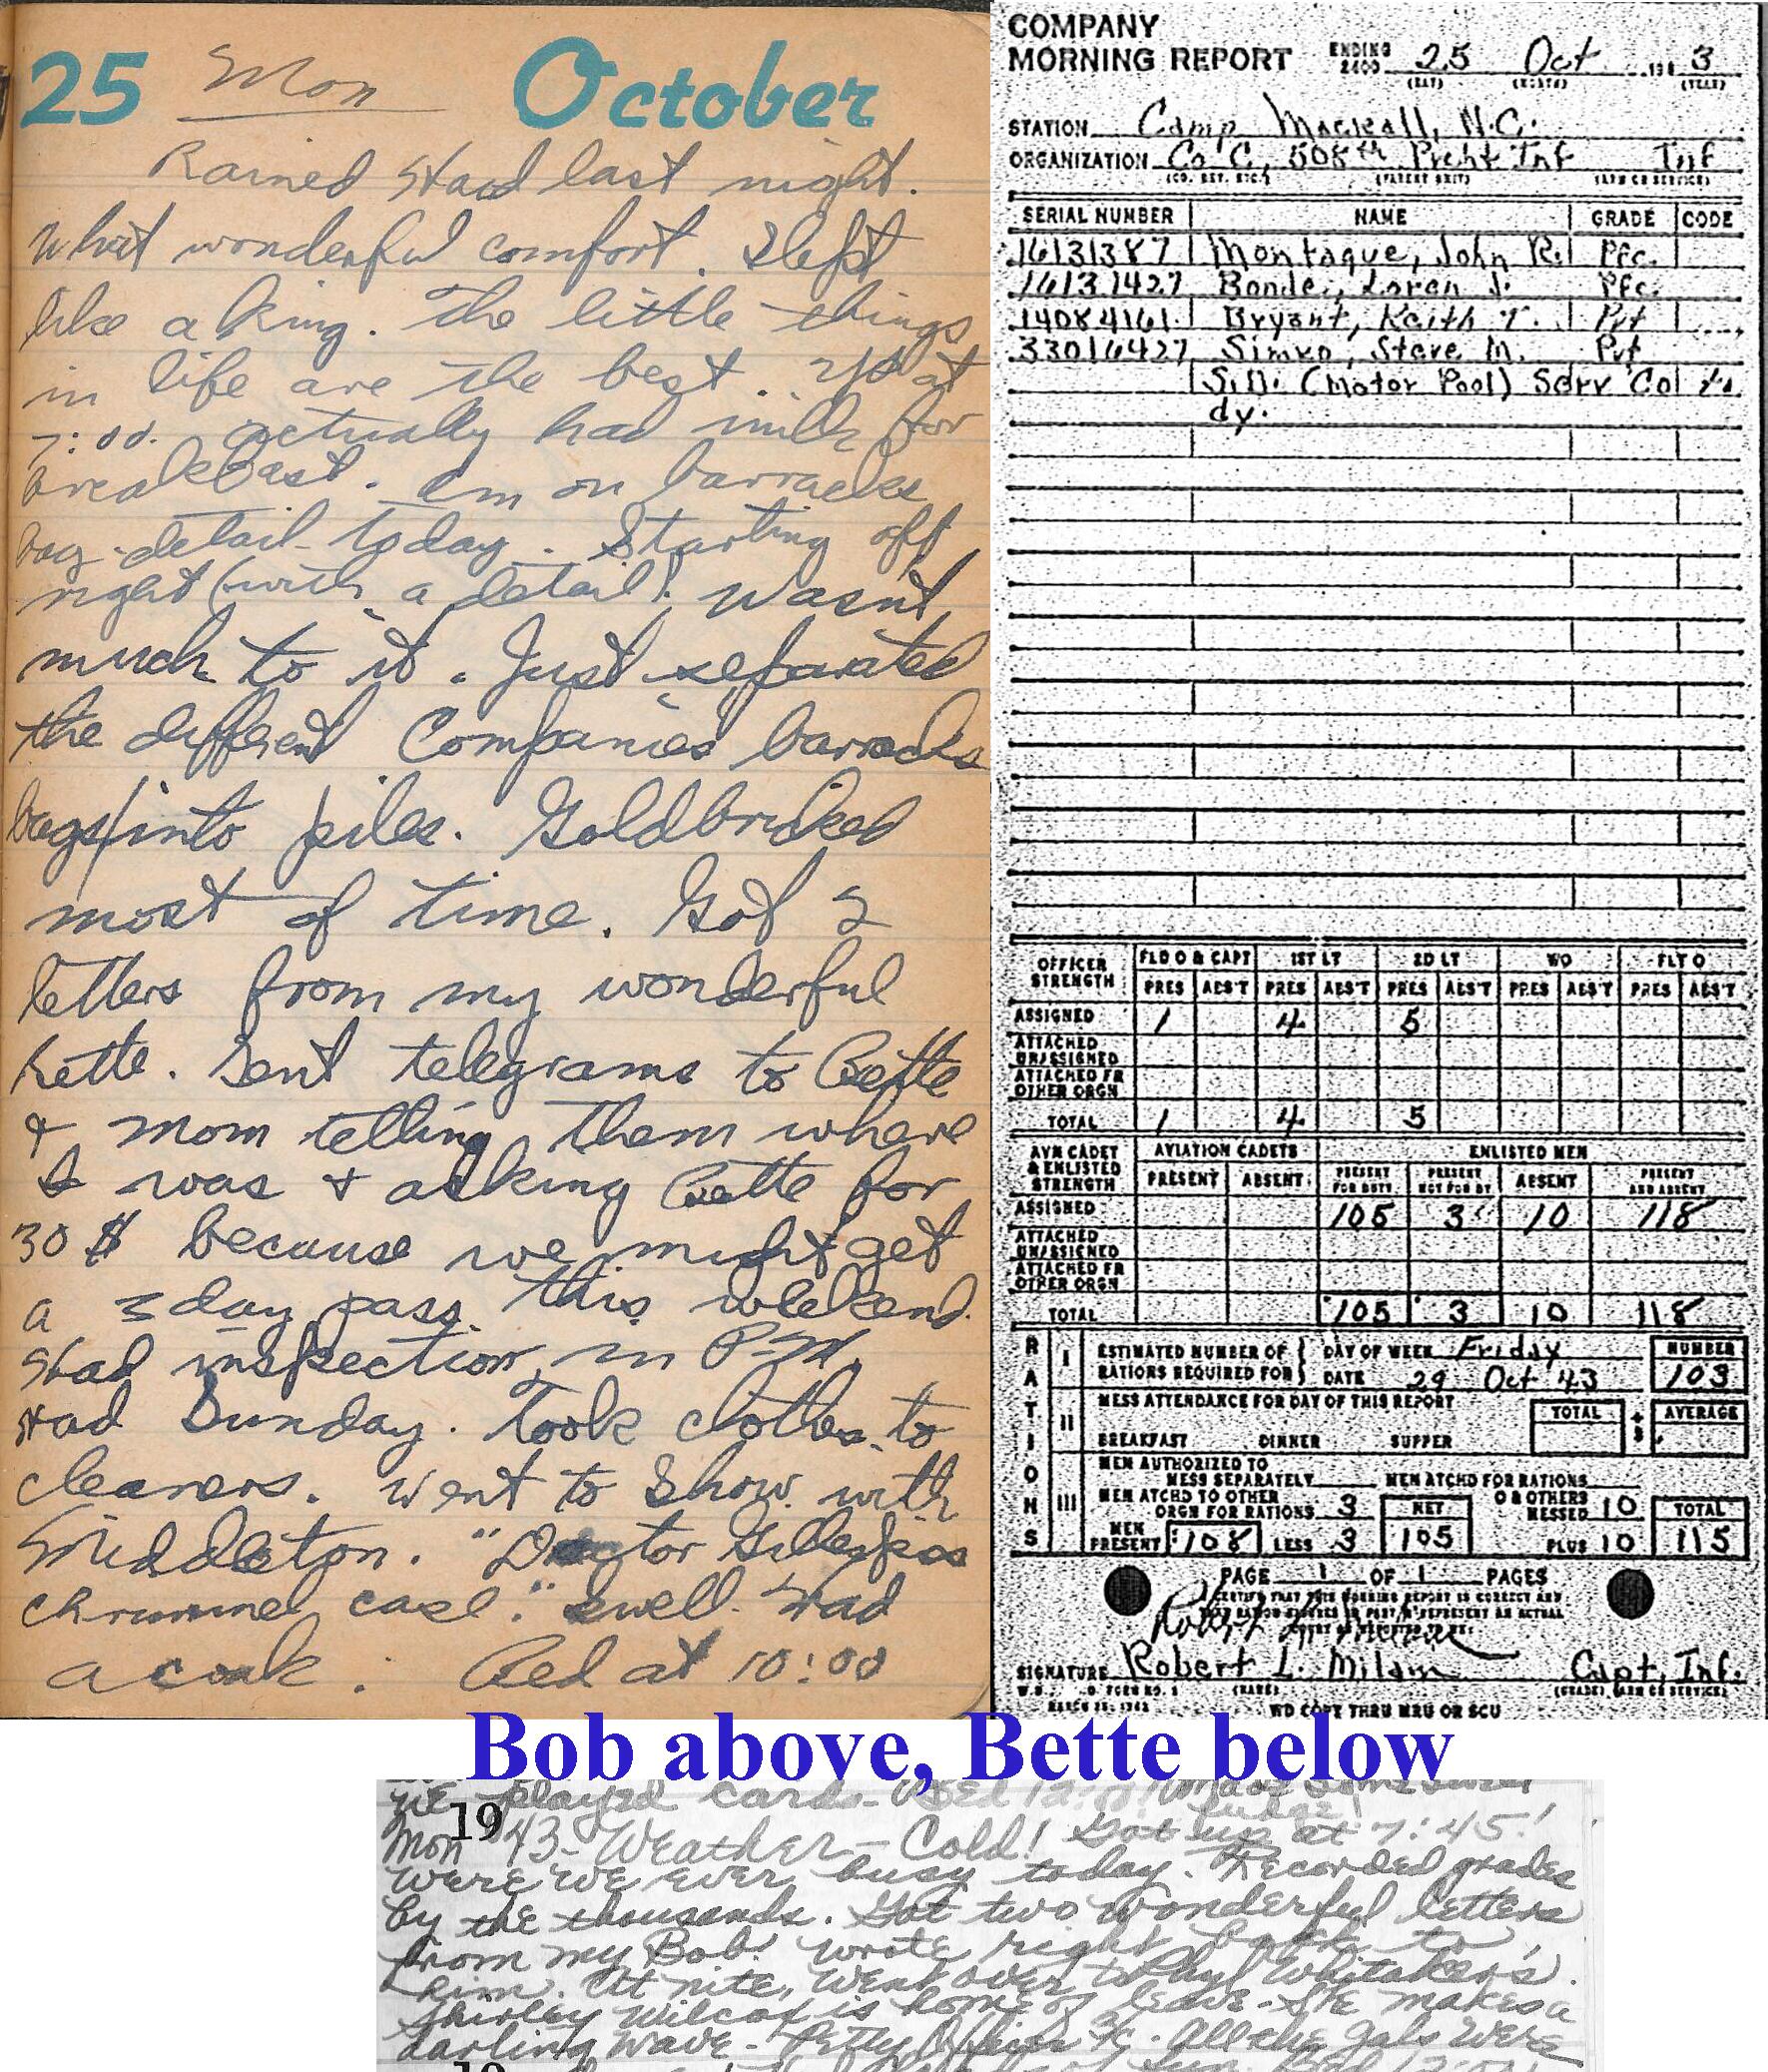 25 Mon October
Rained Hard last night.
What wonderful comfort. Slept
like a king. The little things
in life are the best. Up at
7:00. Actually had milk for
breakfast. Am on barracks
bag detail today. Starting off
right (with a detail). Wasn't
much to it. Just separated
the different Companies barracks
bags/into piles. Goldbricked
most of time. Got 2
letters from my wonderful
Bette. Sent telegrams to Bette
& mom telling them where
I was & asking Bette for
30 $ because we might get
a 3 day pass this weekend.
Had inspection in P.M.
Had Sunday. Took clothes to
cleaners. Went to Show with
Middleton. "Doctor Gillespies
criminal case." Swell. Had
a coak. Bed at 10:00
COMPANY
MORNING REPORT ENDING 2400 25 Oct 194 3
(DAY) (MONTH) (YEAR)
STATION Camp Mackall, N.C.
ORGANIZATION Co C, 508th Prcht Inf Inf
(CO. DET. ETC.) (PARENT UNIT) (ARM OR SERVICE)
SERIAL NUMBER NAME GRADE CODE
16131387 Montague, John R. Pfc.
16131427 Bonde, Loren J. Pfc.
14084161 Bryant, Keith T. Pvt
33016427 Simko, Steve M. Pvt
S.D. (Motor Pool) Serv Co to
dy.
OFFICER STRENGTH FLD O & CAPT 1ST LT 2D LT WO FLT O
PRES ABS'T PRES ABS'T PRES ABS'T PRES ABS'T PRES ABS'T
ASSIGNED 1 4 5
ATTACHED UNASSIGNED
ATTACHED FR OTHER ORGN
TOTAL 1 4 5
AVN CADET & ENLISTED STRENGTH AVIATION CADETS ENLISTED MEN
PRESENT ABSENT PRESENT FOR DUTY PRESENT NOT FOR DY ABSENT PRESENT AND ABSENT
ASSIGNED 105 3 10 118
ATTACHED UNASSIGNED
ATTACHED FR OTHER ORGN
TOTAL 105 3 10 118
RATIONS
I ESTIMATED NUMBER OF RATIONS REQUIRED FOR DAY OF WEEK Friday NUMBER
DATE 29 Oct 43 103
II MESS ATTENDANCE FOR DAY OF THIS REPORT TOTAL ÷ 3 AVERAGE
BREAKFAST DINNER SUPPER
III MEN AUTHORIZED TO MESS SEPARATELY MEN ATCHD FOR RATIONS
MEN ATCHD TO OTHER ORGN FOR RATIONS 3 NET O & OTHERS MESSED 10 TOTAL
MEN PRESENT 108 LESS 3 105 PLUS 10 115
PAGE 1 OF 1 PAGES
SIGNATURE Robert L. Milam Capt, Inf.
(NAME) (GRADE) (ARM OR SERVICE)
WD COPY THRU MRU OR SCU
Bob above, Bette below
We played cards. Bed
19
Mon '43 - Weather - Cold! Got up at 7:45!
Were we ever busy today. Recorded grades
by the thousands. Got two wonderful letters
from my Bob! Wrote right back to
him. At nite, went over to Whitaker's.
Shirley Wilcox is home on leave - She makes a
darling Wave - Petty Officer. All the gals were